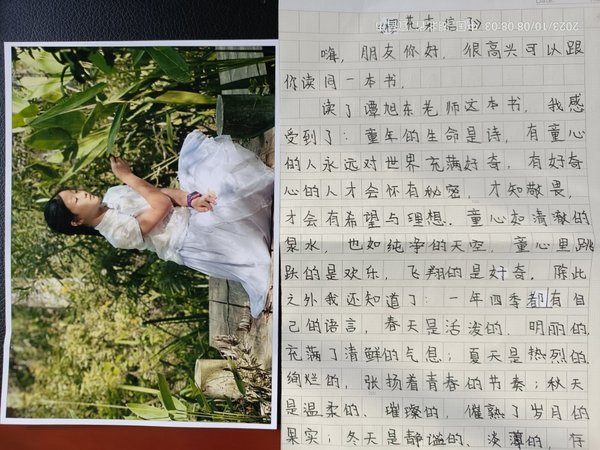 2023/10/08 08:03
嗨，朋友你好，很高兴可以跟
你读同一本书。
读了谭旭东老师这本书，我感
受到了：童年的生命是诗，有童心
的人永远对世界充满好奇，有好奇
心的人才会怀有秘密，才知敬畏，
才会有希望与理想。童心如清澈的
泉水，也如纯净的天空，童心里跳
跃的是欢乐，飞翔的是好奇。除此
之外我还知道了：一年四季都有自
己的语言，春天是活泼的、明丽的，
充满了清鲜的气息；夏天是热烈的
绚烂的，张扬着青春的节奏；秋天
是温柔的、璀璨的，催熟了岁月的
果实；冬天是静谧的、淡薄的，存